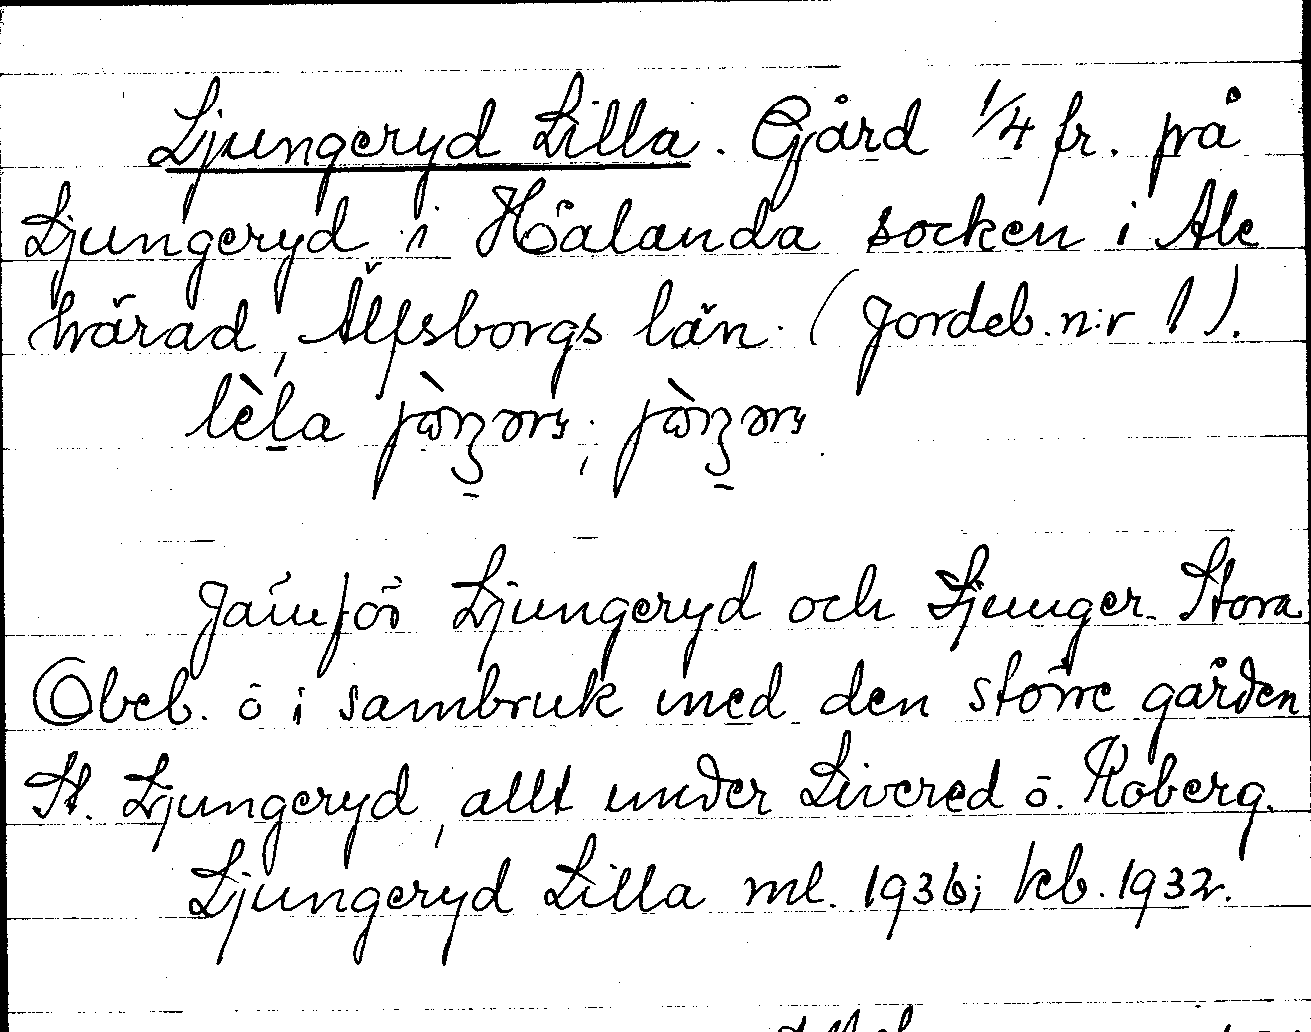 Ljungeryd Lilla. Gård 1/4 fr. på
Ljungeryd i Hålanda socken i Ale
härad, Älfsborgs län. (Jordeb. n:r 1).
Jämför Ljungeryd och Ljunger. Stora
Obeb. o i sambruk med den större gården
St. Ljungeryd, allt under Livered o. Koberg.
Ljungeryd Lilla ml. 1936; kb. 1932.